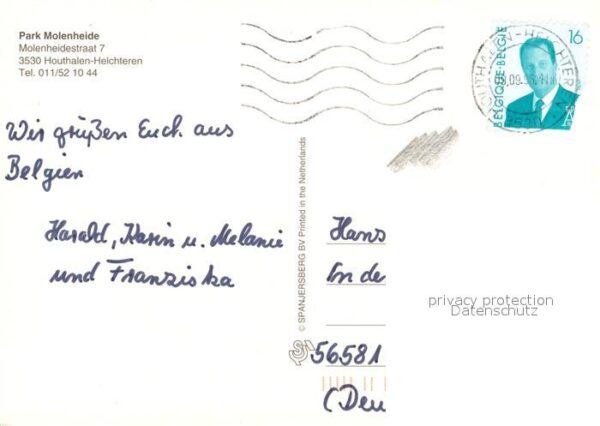 Park Molenheide
Molenheidestraat 7
3530 Houthalen-Helchteren
Tel. 011/52 10 44
16
BELGIQUE-BELGIE
HOUTHALEN-HELCHTEREN
3530
Wir grüßen Euch aus
Belgien
Harald, Karin u. Melanie
und Franziska
© SPANJERSBERG BV Printed in the Netherlands
Hans
In de
56581
(Deu
privacy protection
Datenschutz